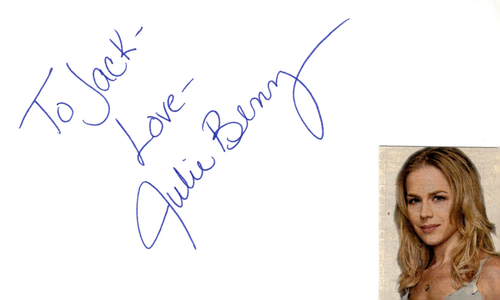 To Jack-
Love-
Julie